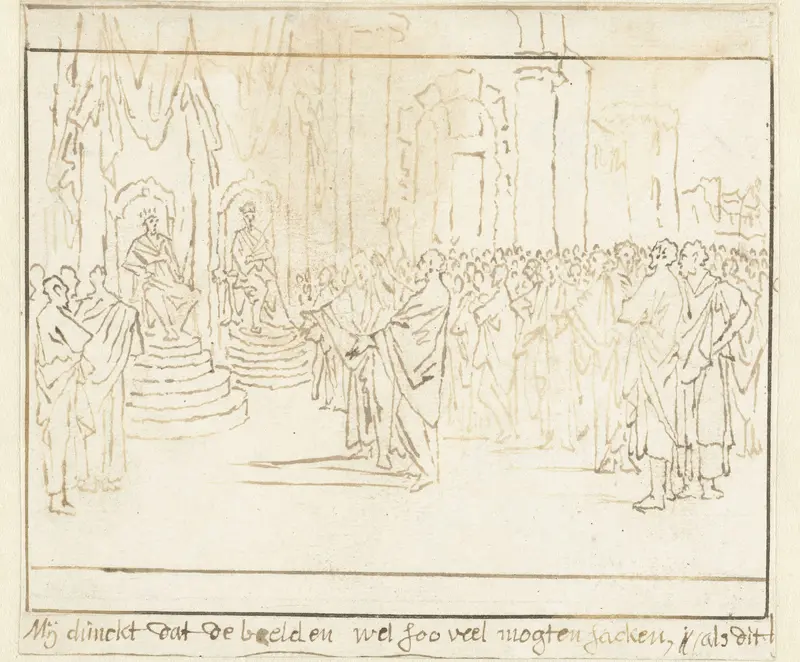 Mij dünckt dat de beelden wel soo veel mogten sacken, als dit